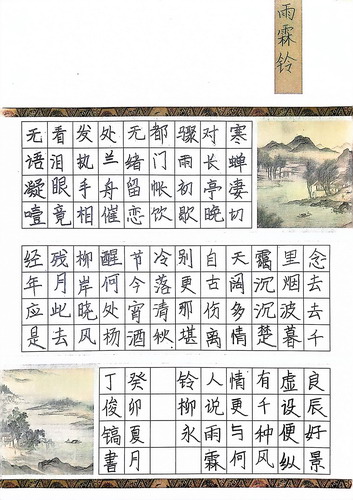 雨霖铃
寒蝉凄切
对长亭晚
骤雨初歇
都门帐饮
无绪留恋
处兰舟催
发执手相
看泪眼竟
无语凝噎
念去去千
里烟波暮
霭沉沉楚
天阔多情
自古伤离
别更那堪
冷落清秋
节今宵酒
醒何处杨
柳岸晓风
残月此去
经年应是
良辰好景
虚设便纵
有千种风
情更与何
人说雨霖
铃柳永
癸卯夏月
丁俊镐书